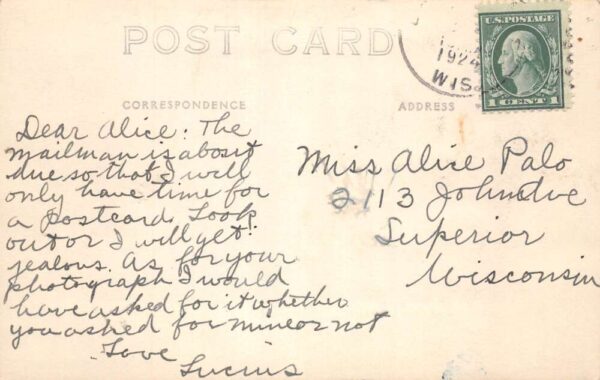 POST CARD
U.S. POSTAGE
1 CENT 1
1924
WIS.
CORRESPONDENCE
ADDRESS
Dear Alice: The
mailman is about
due so that I will
only have time for
a postcard. Look
out or I will get
jealous. As for your
photograph I would
have asked for it whether
you asked for mine or not
Love
Lucius
Miss Alice Palo
2113 John Ave
Superior
Wisconsin